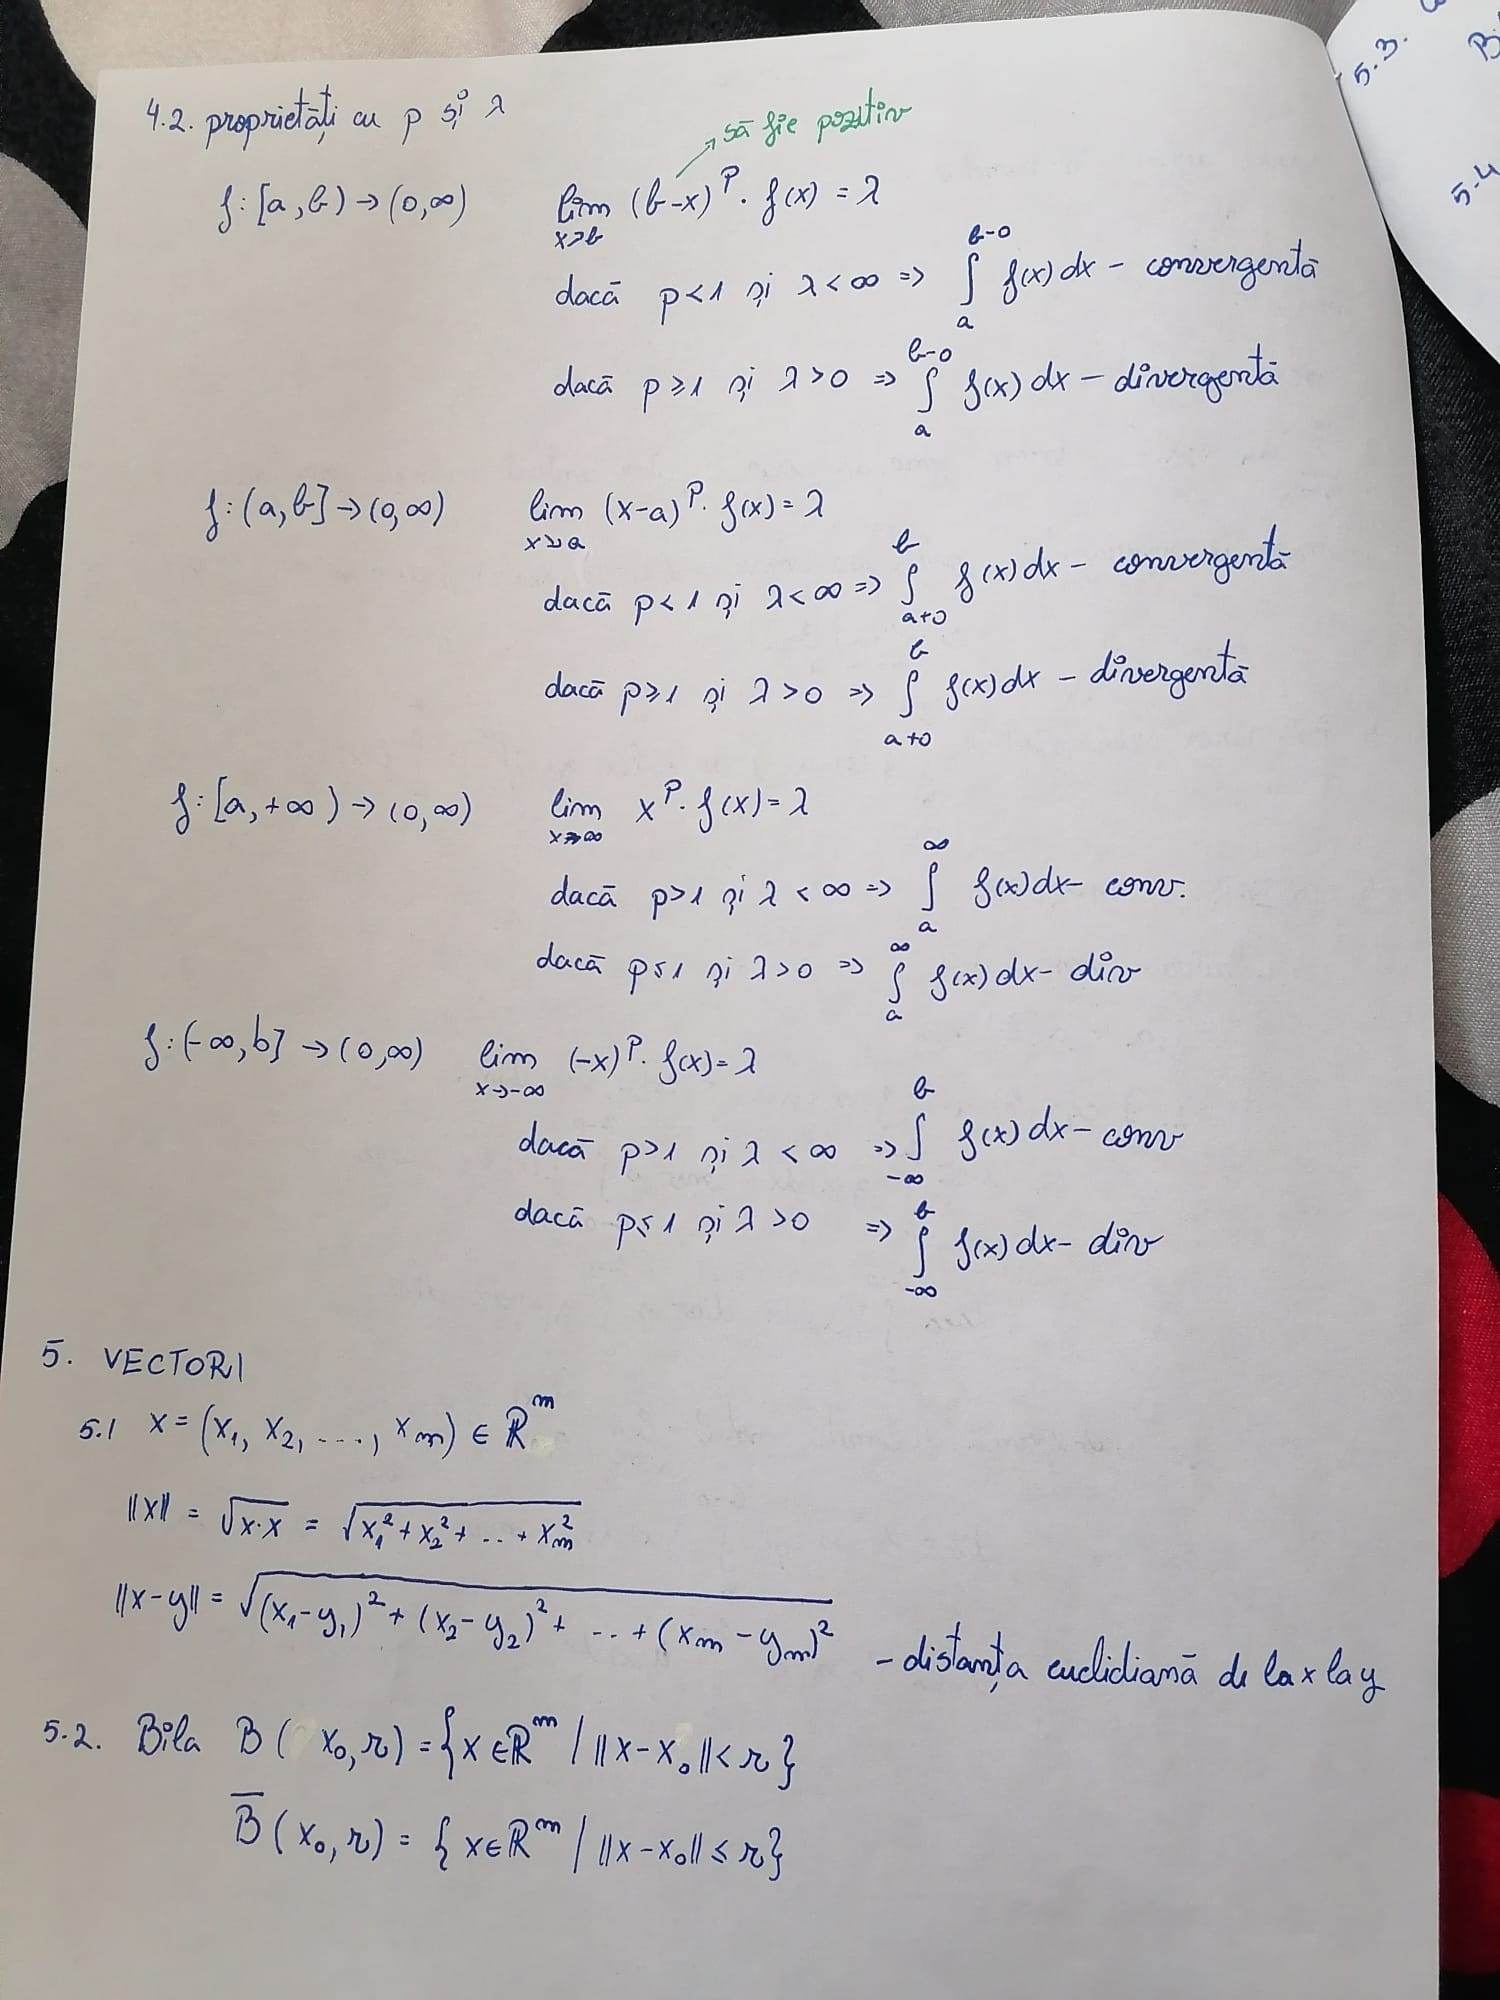 4.2. proprietăți cu p și λ
să fie pozitiv
f: [a, b) → (0, ∞) lim x↗b (b-x)^p · f(x) = λ
dacă p < 1 și λ < ∞ => ∫_a^{b-0} f(x) dx - convergentă
dacă p ≥ 1 și λ > 0 => ∫_a^{b-0} f(x) dx - divergentă
f: (a, b] → (0, ∞) lim x↘a (x-a)^p · f(x) = λ
dacă p < 1 și λ < ∞ => ∫_{a+0}^b f(x) dx - convergentă
dacă p ≥ 1 și λ > 0 => ∫_{a+0}^b f(x) dx - divergentă
f: [a, +∞) → (0, ∞) lim x→∞ x^p · f(x) = λ
dacă p > 1 și λ < ∞ => ∫_a^∞ f(x) dx - conv.
dacă p ≤ 1 și λ > 0 => ∫_a^∞ f(x) dx - div
f: (-∞, b] → (0, ∞) lim x→-∞ (-x)^p · f(x) = λ
dacă p > 1 și λ < ∞ => ∫_{-∞}^b f(x) dx - conv
dacă p ≤ 1 și λ > 0 => ∫_{-∞}^b f(x) dx - div
5. VECTORI
5.1 x = (x₁, x₂, ..., xₘ) ∈ ℝ^m
||x|| = √(x·x) = √(x₁² + x₂² + .. + xₘ²)
||x-y|| = √((x₁-y₁)² + (x₂-y₂)² + ... + (xₘ-yₘ)²) - distanța euclidiană de la x la y
5.2. Bila B(x₀, r) = {x ∈ ℝ^m / ||x-x₀|| < r}
B̅(x₀, r) = {x ∈ ℝ^m / ||x-x₀|| ≤ r}
5.3.
5.4